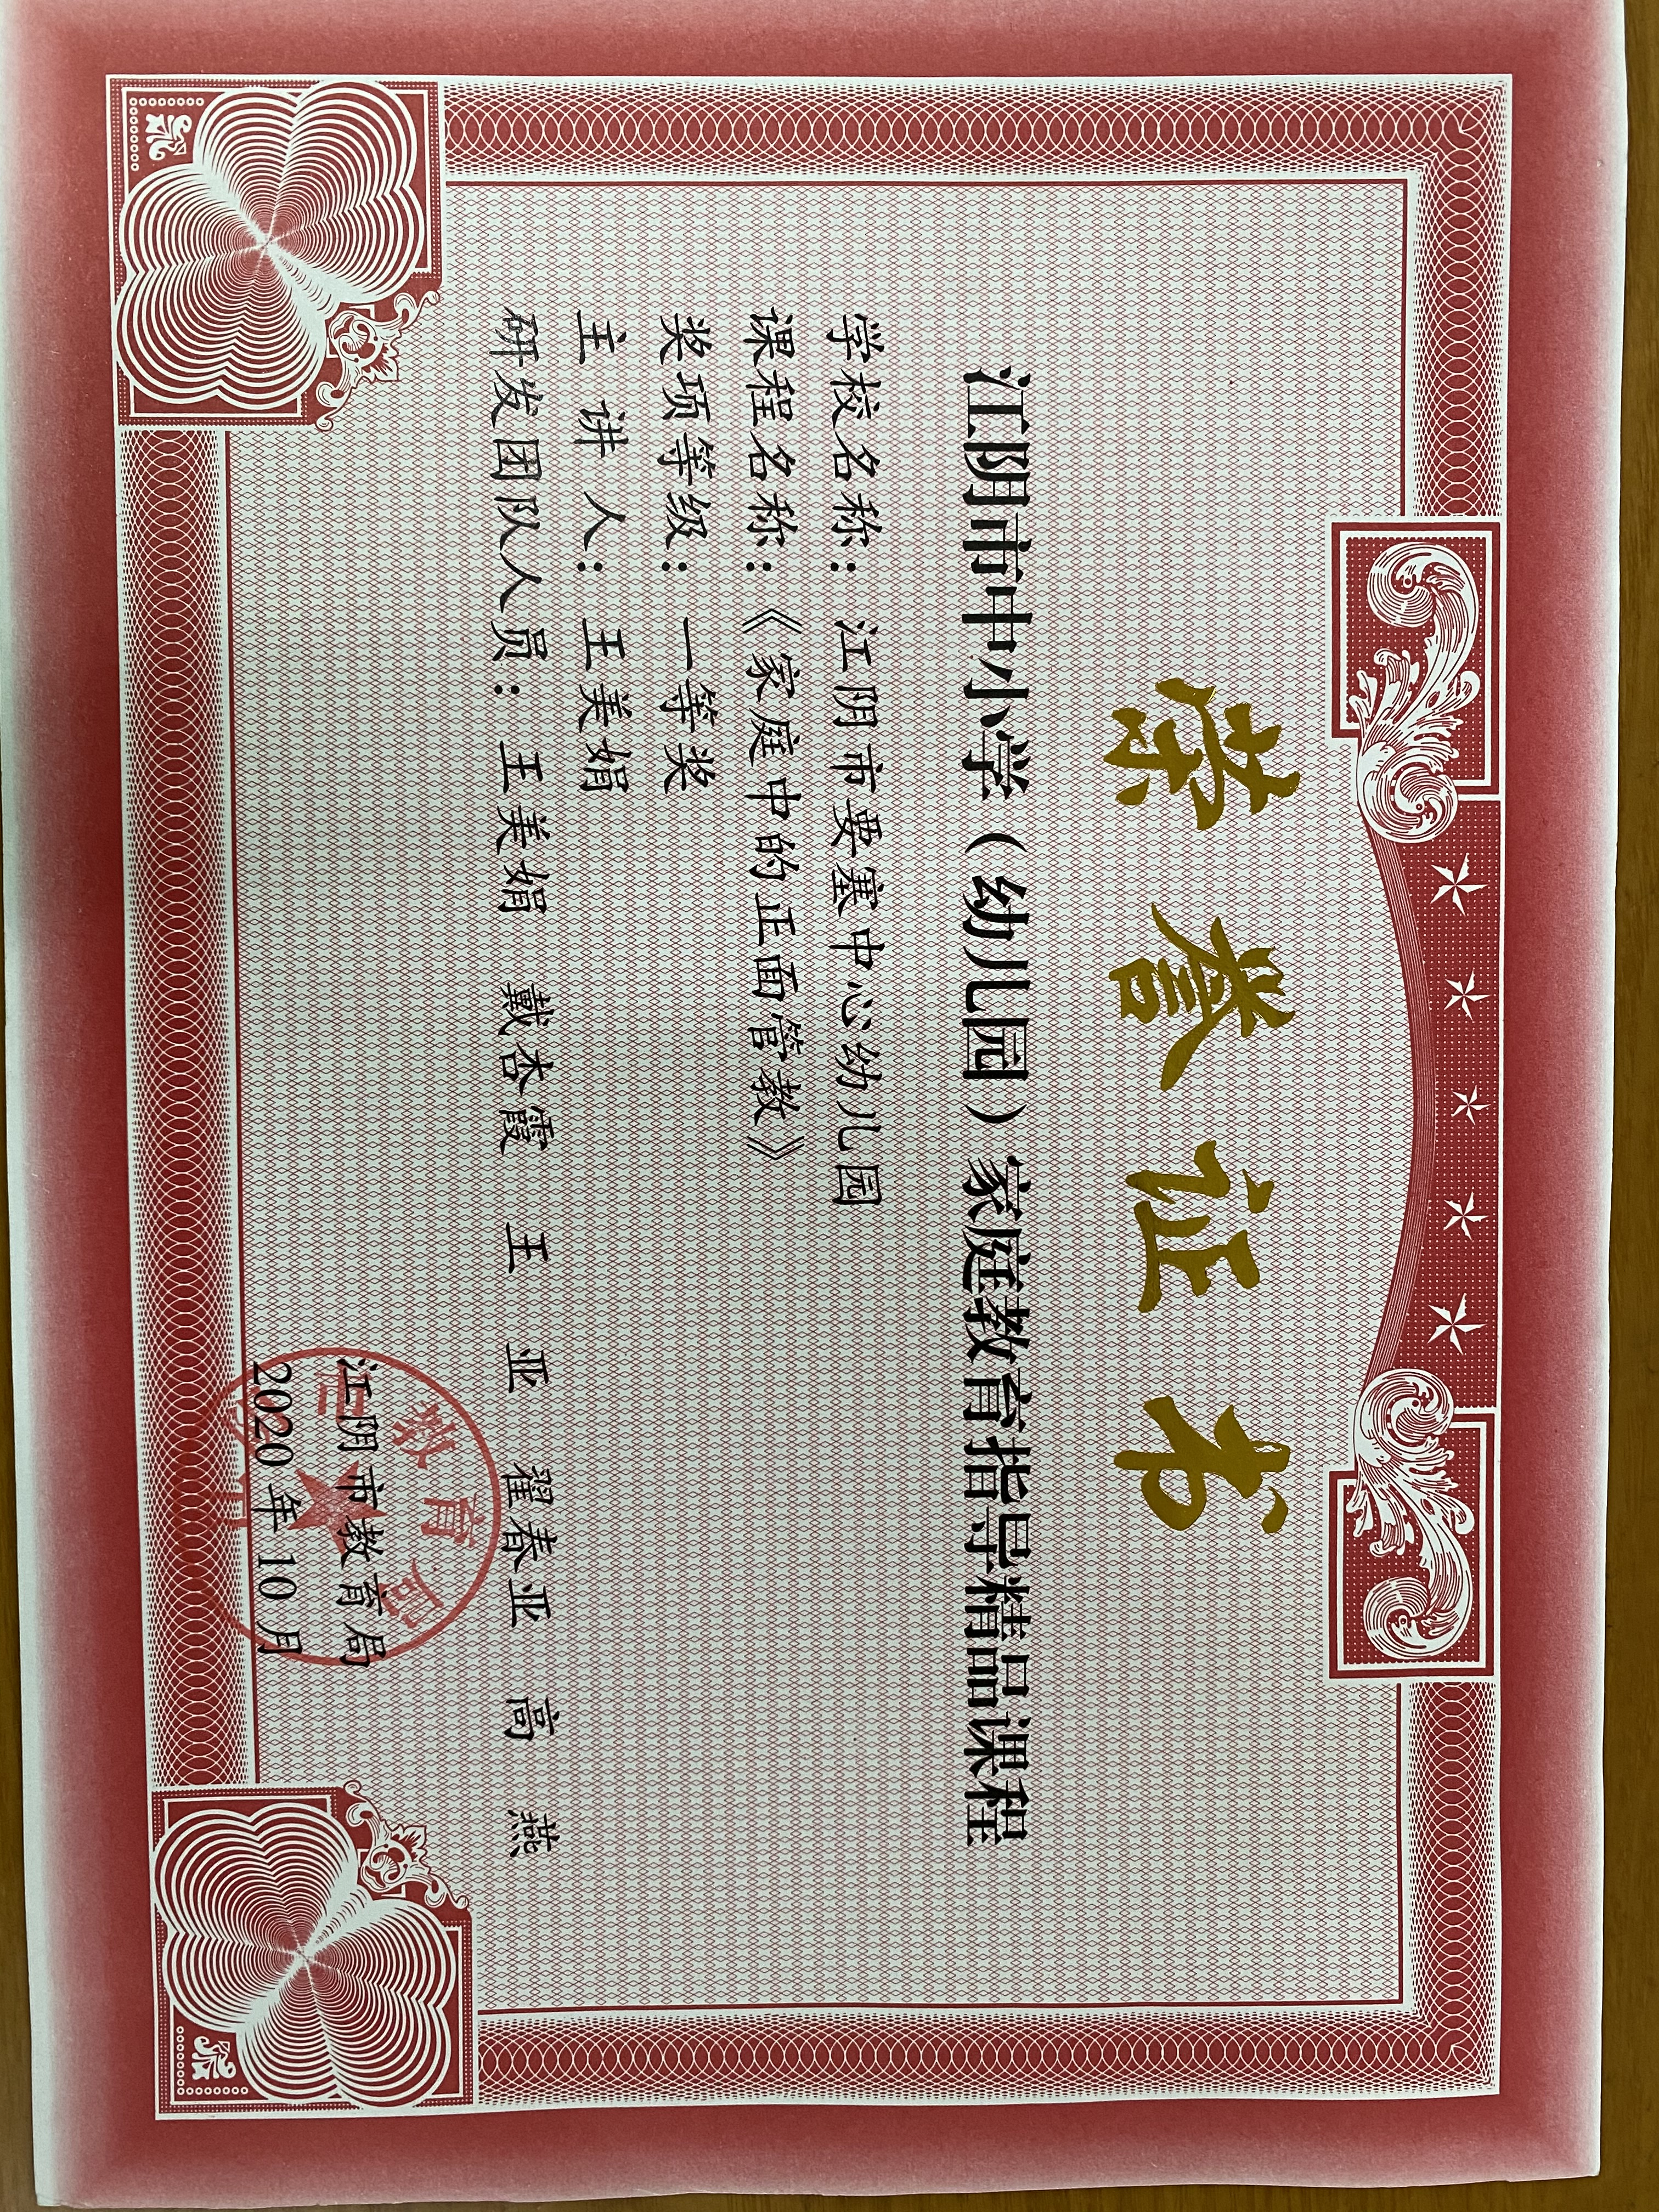 荣誉证书
江阴市中小学（幼儿园）家庭教育指导精品课程
学校名称：江阴市要塞中心幼儿园
课程名称：《家庭中的正面管教》
奖项等级：一等奖
主 讲 人：王美娟
研发团队人员：王美娟 戴杏霞 王 亚 翟春亚 高 燕
江阴市教育局
2020年10月
教育局